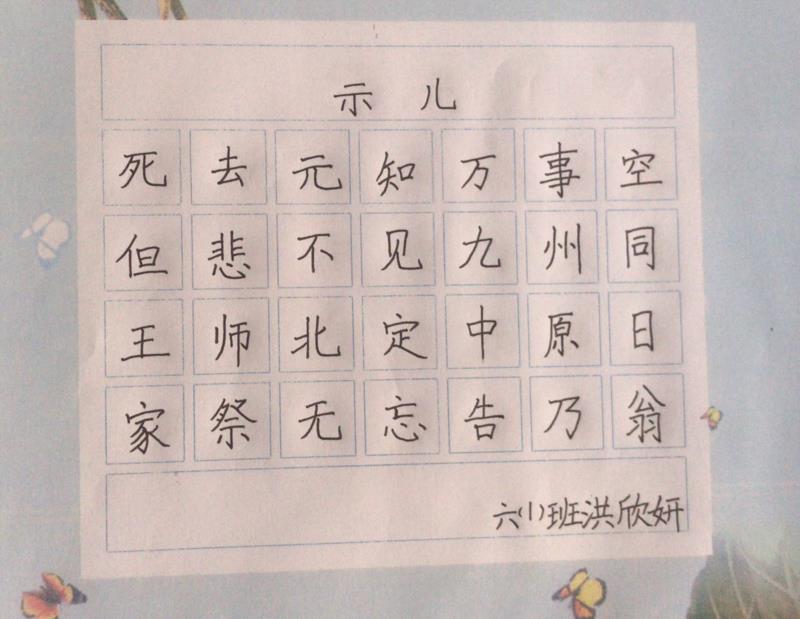 示 儿
死去元知万事空
但悲不见九州同
王师北定中原日
家祭无忘告乃翁
六(1)班洪欣妍